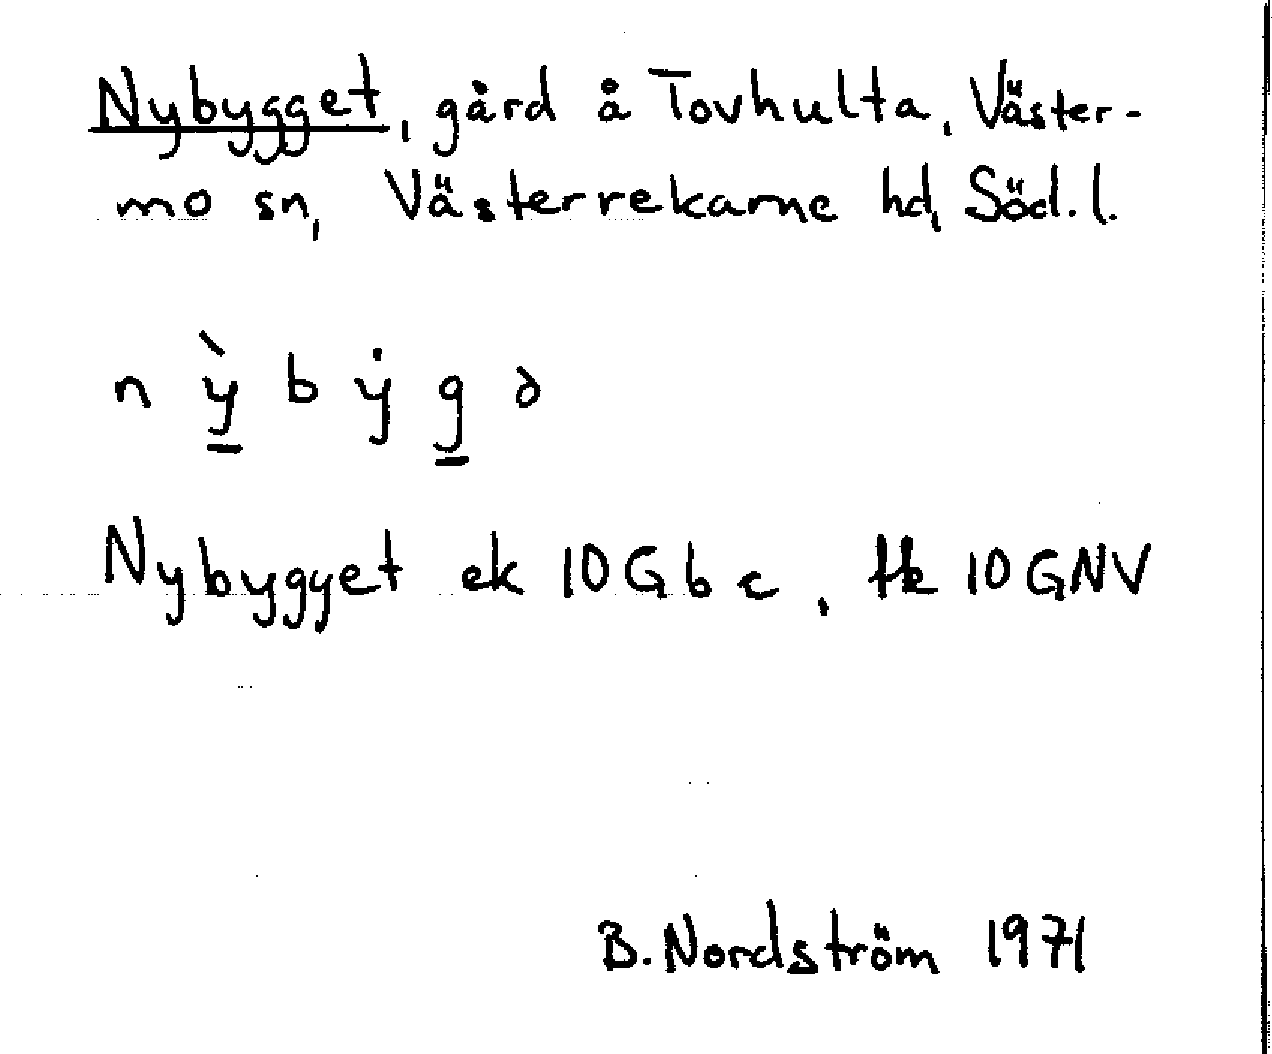 Nybygget, gård å Tovhulta, Väster-
mo sn, Västerrekarne hd, Söd. l.
n ỳ̠ b ẏ g̠ ə
Nybygget ek 10G b c, tk 10 GNV
B. Nordström 1971